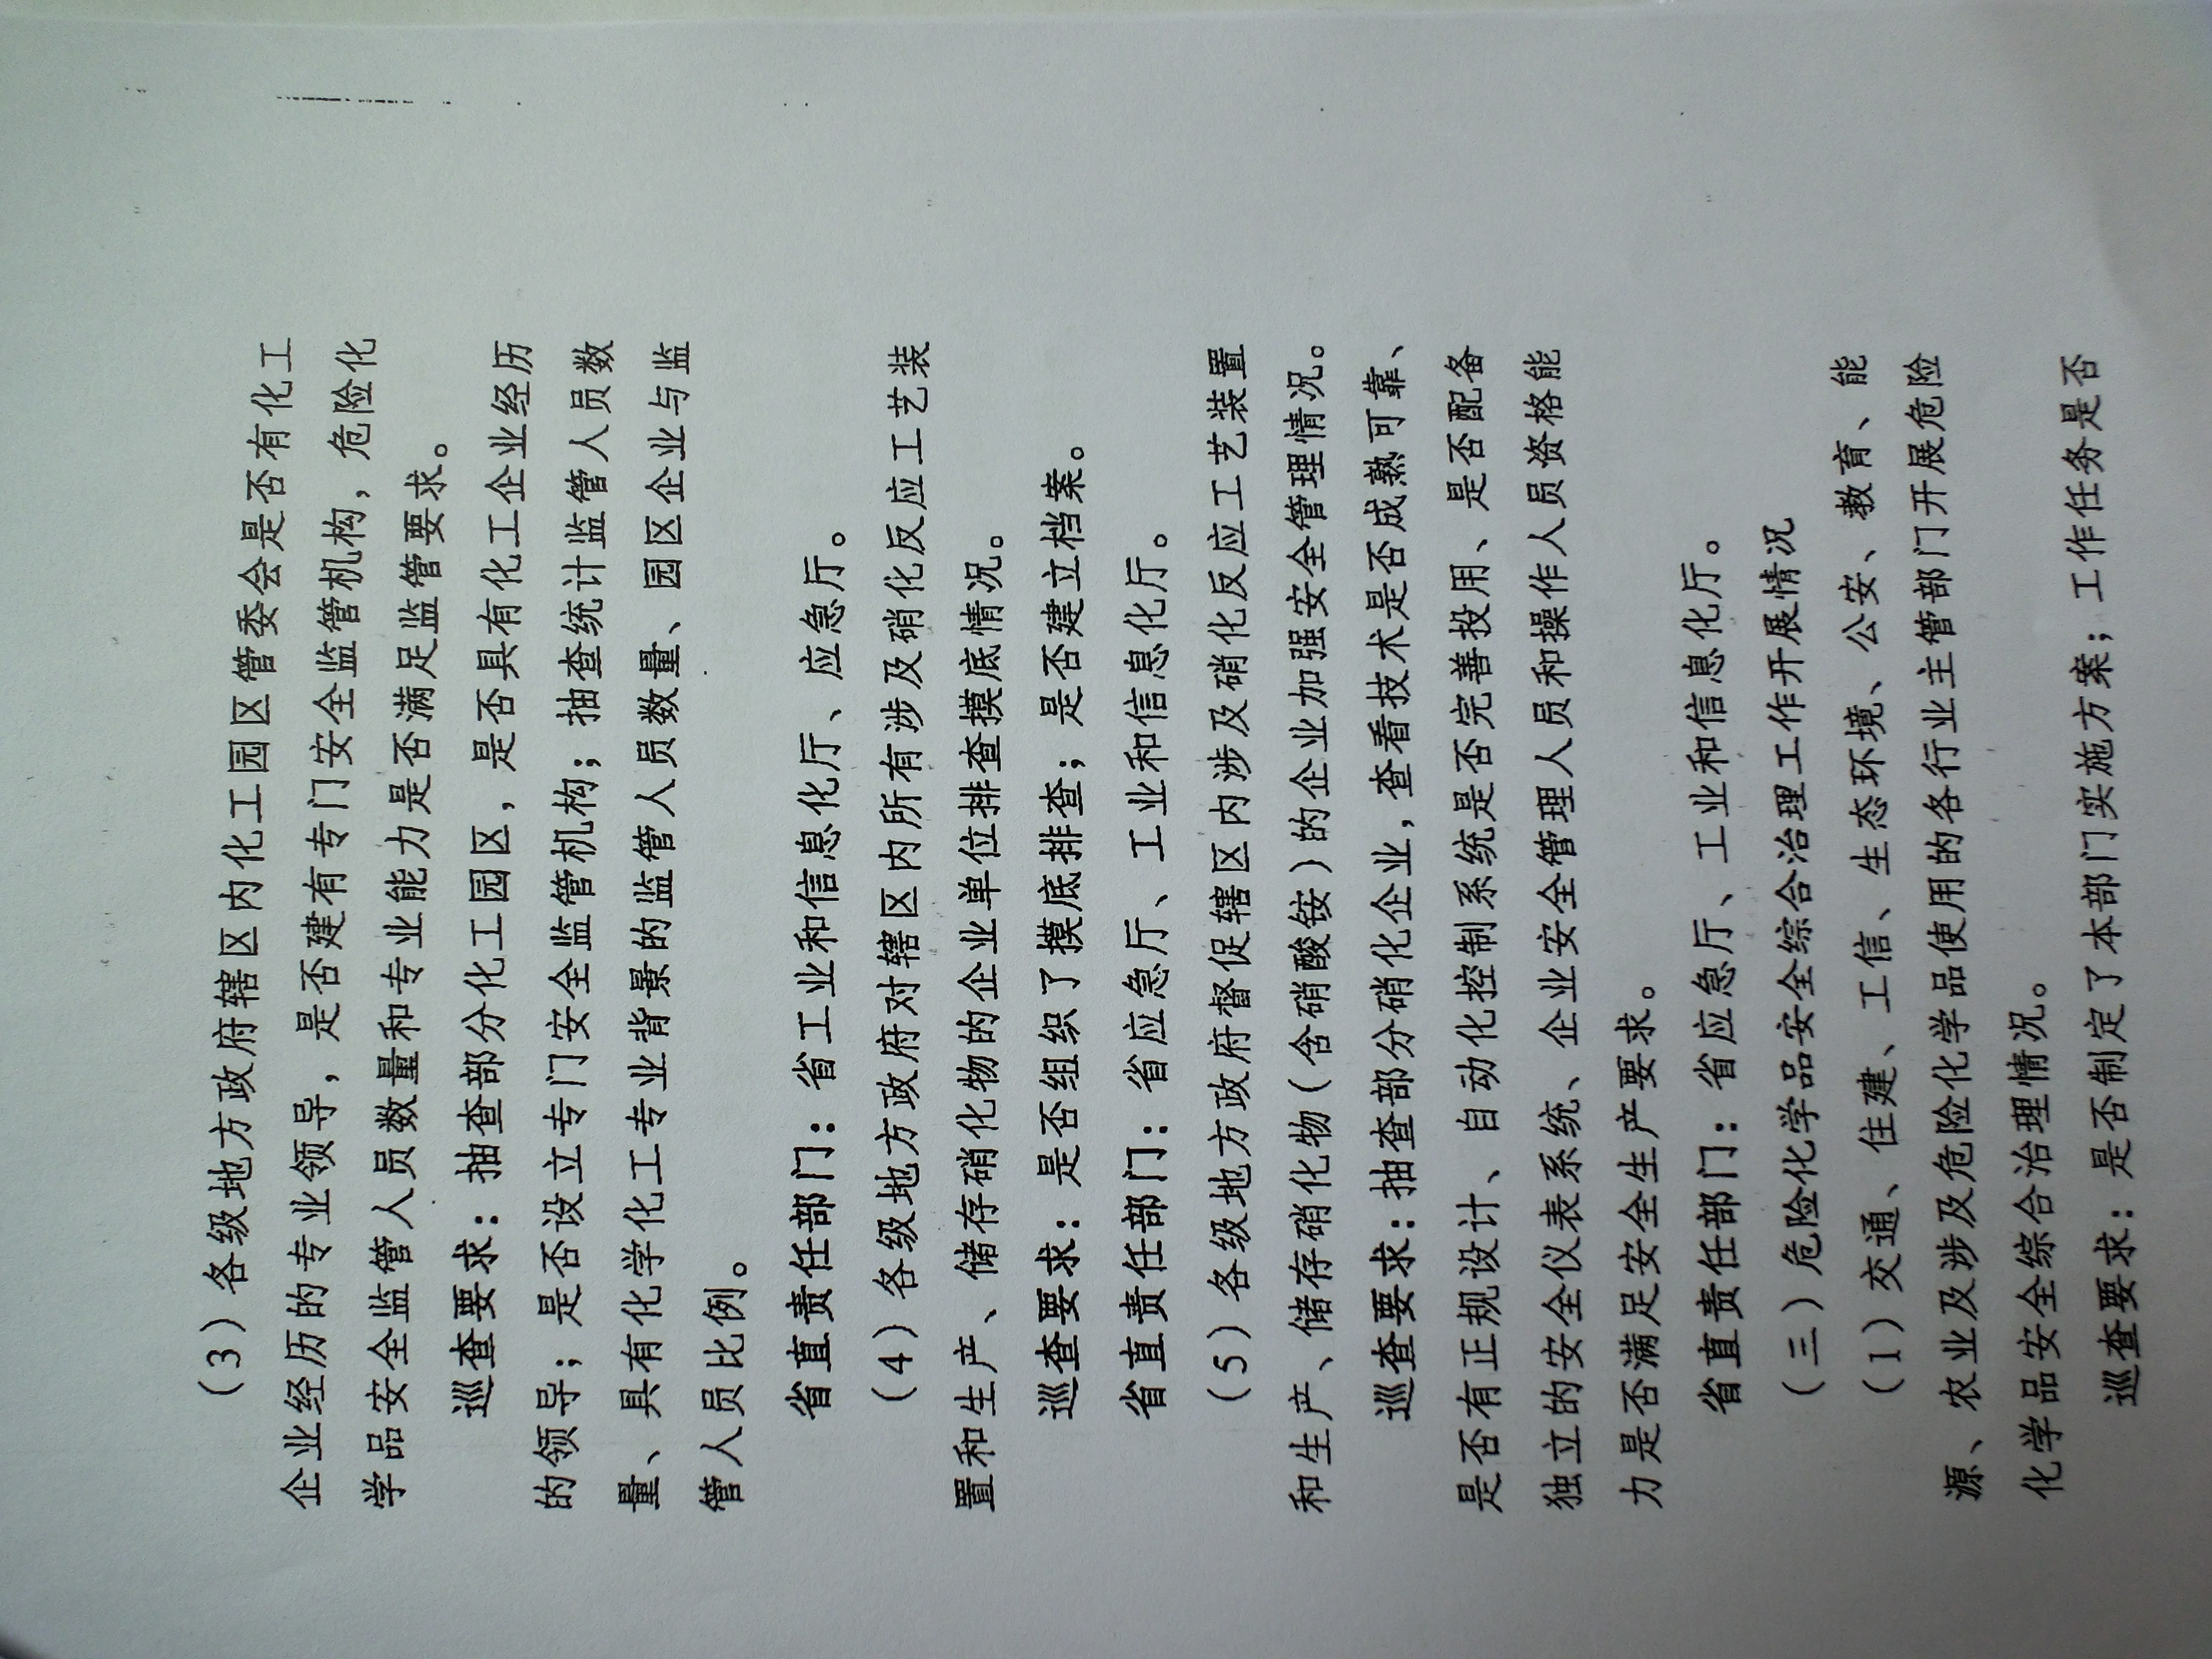 （3）各级地方政府辖区内化工园区管委会是否有化工
企业经历的专业领导，是否建有专门安全监管机构，危险化
学品安全监管人员数量和专业能力是否满足监管要求。
巡查要求：抽查部分化工园区，是否具有化工企业经历
的领导；是否设立专门安全监管机构；抽查统计监管人员数
量、具有化学化工专业背景的监管人员数量、园区企业与监
管人员比例。
省直责任部门：省工业和信息化厅、应急厅。
（4）各级地方政府对辖区内所有涉及硝化反应工艺装
置和生产、储存硝化物的企业单位排查摸底情况。
巡查要求：是否组织了摸底排查；是否建立档案。
省直责任部门：省应急厅、工业和信息化厅。
（5）各级地方政府督促辖区内涉及硝化反应工艺装置
和生产、储存硝化物（含硝酸铵）的企业加强安全管理情况。
巡查要求：抽查部分硝化企业，查看技术是否成熟可靠、
是否有正规设计、自动化控制系统是否完善投用、是否配备
独立的安全仪表系统、企业安全管理人员和操作人员资格能
力是否满足安全生产要求。
省直责任部门：省应急厅、工业和信息化厅。
（三）危险化学品安全综合治理工作开展情况
（1）交通、住建、工信、生态环境、公安、教育、能
源、农业及涉及危险化学品使用的各行业主管部门开展危险
化学品安全综合治理情况。
巡查要求：是否制定了本部门实施方案；工作任务是否